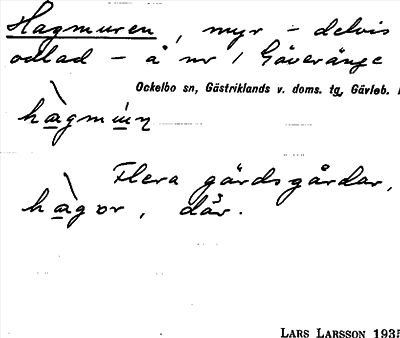 Hagmuren, myr - delvis
odlad - å nr 1 Gåveränge
Ockelbo sn, Gästriklands v. doms. tg, Gävleb. l
hagmuın
Flera gärdsgårdar,
hagor, där.
LARS LARSSON 1935